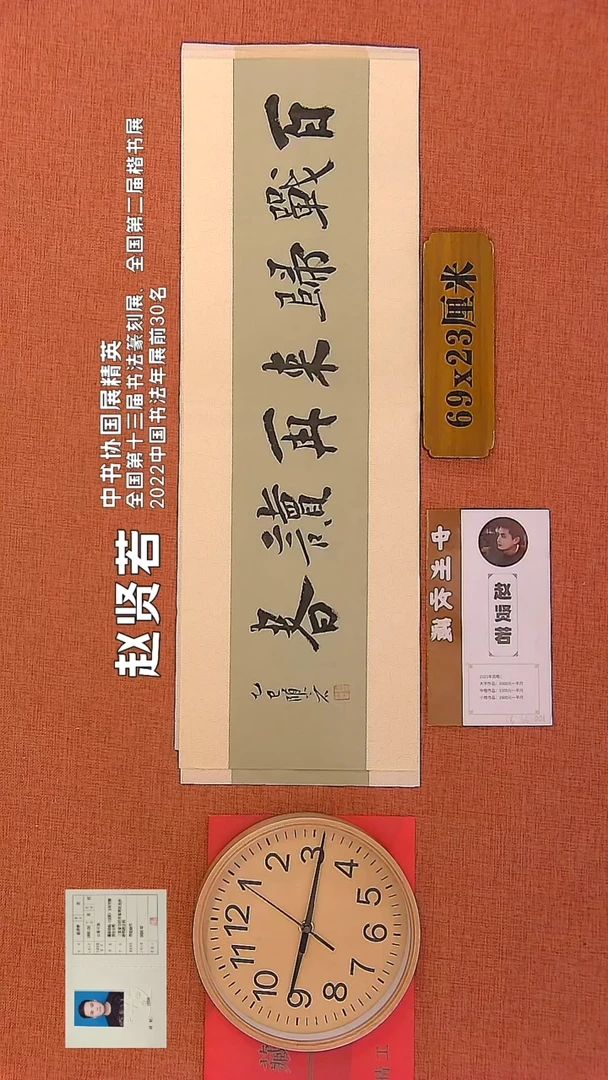 中书协国展精英
全国第十三届书法篆刻展、全国第二届楷书展
2022中国书法年展前30名
赵贤若
百戰歸來再讀書
乙巳賢若
69x23厘米
赵贤若
12
1
2
3
4
5
6
7
8
9
10
11
藏
精工